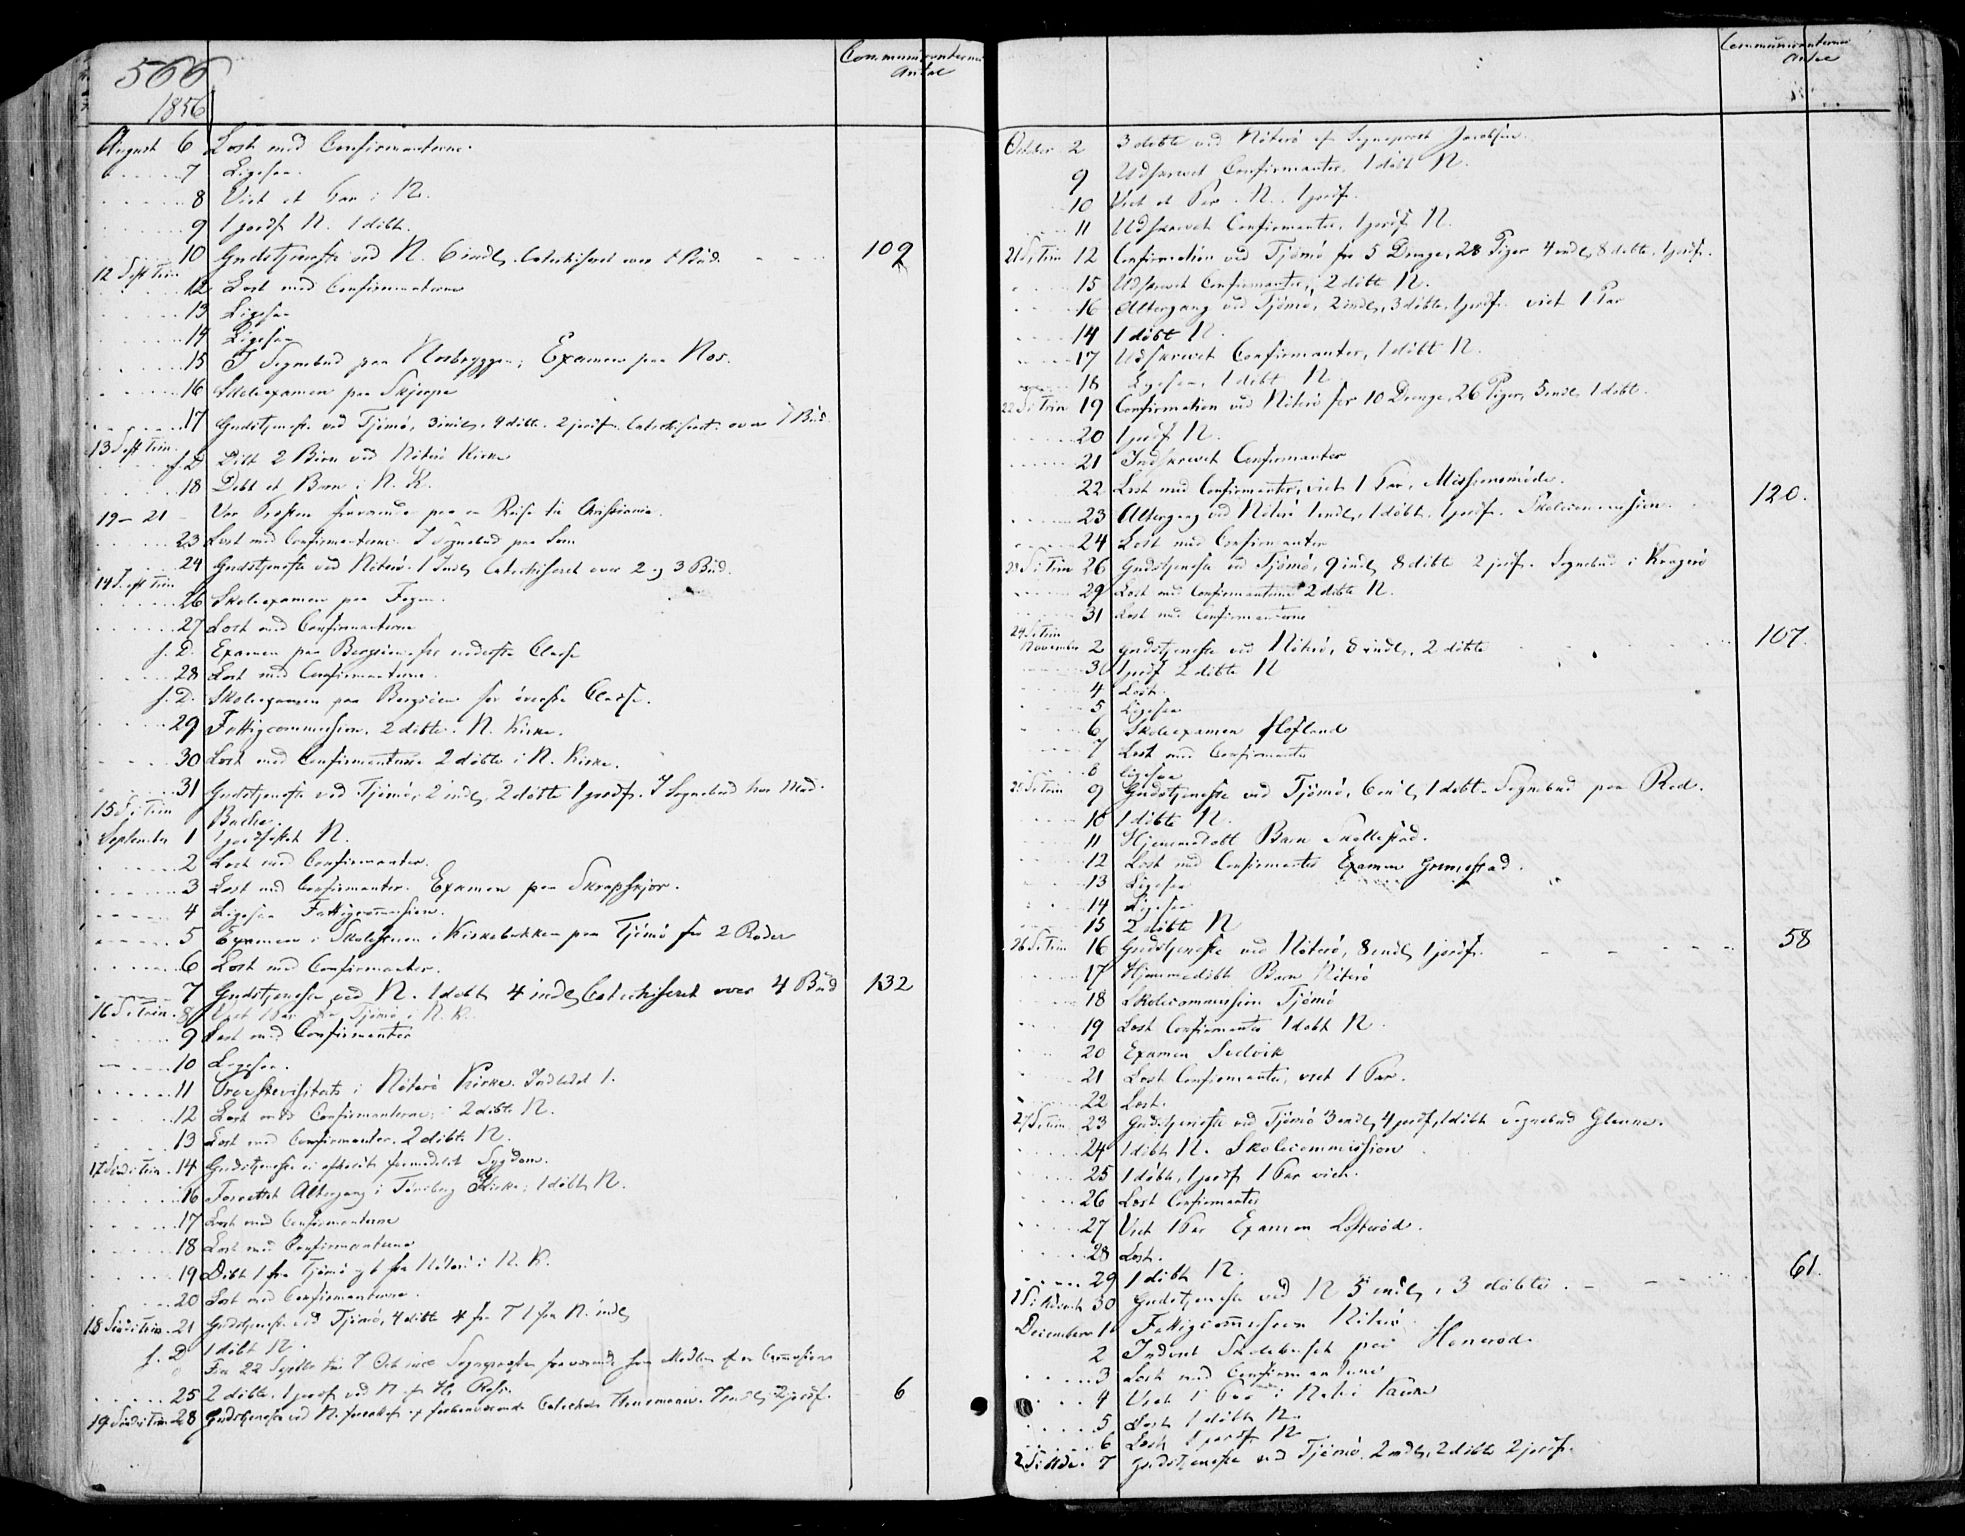 566
Communicanternes Antal
1856
August 6 Læst med Confirmanterne.
7 Ligesaa.
8 Viet et Par i N.
9 1 jordf. N. 1 døbt.
10 Gudstjeneste ved N. 6 indl. Catechiseret over Bud. 109
12 S. eft Trin.
12 Læst med Confirmanterne
13 Ligesaa
14 Ligesaa
15 I Sognebud paa Nesbryggen; Examen paa Nes.
16 Skoleexamen paa Skjerpe
17 Gudstjeneste ved Tjømø, 3 indl. 4 døbte. 2 jordf. Catechiseret over Bud.
13 S. eft Trin.
s. D. Døbt 2 Børn ved Nøterø Kirke
18 Døbt et Barn i N. K.
19-21 Var Præsten fraværende paa en Reise til Christiania.
23 Læst med Confirmanterne. I Sognebud paa
24 Gudstjeneste ved Nøterø. 1 Indl. Catechiseret over 2 og 3 Bud.
14 S. eft Trin
26 Skoleexamen paa
27 Læst med Confirmanterne
s. D. Examen paa for nederste Classe
28 Læst med Confirmanterne.
s. D. Skoleexamen paa for øverste Classe.
29 Fattigcommission. 2 døbte. N. Kirke.
30 Læst med Confirmanterne 2 døbte i N. Kirke.
31 Gudstjeneste ved Tjømø, 2 indl. 2 døbte 1 jordf. I Sognebud hos Mad.
15 S. e. Trin Bache.
September 1 1 jordfæstet N.
2 Læst med Confirmanter.
3 Læst med Confirmanter. Examen paa
4 Ligesaa Fattigcommission.
5 Examen i Skolestuen i Kirkebakken paa Tjømø for 2 Roder
6 Læst med Confirmanter.
7 Gudstjeneste ved N. 1 døbt, 4 indl. Catechiseret over 4 Bud 132
16 S. e. Trin. 8 Viet 1 Par fra Tjømø i N. K.
9 Læst med Confirmanter
10 Ligesaa.
11 Provstevisitats i Nøterø Kirke. Indledet 1.
12 Læst med Confirmanterne; 2 døbte N.
13 Læst med Confirmanter. 2 døbte N.
17 Snd. e. Trin. 14 Gudstjeneste ei afholdt formedelst Sygdom.
16 Forrettet Altergang i Tønsberg Kirke; 1 døbt N.
17 Læst med Confirmanterne
18 Læst med Confirmanterne
19 Døbt 1 fra Tjømø og fra Nøterø i N. K.
20 Læst med Confirmanterne.
18 Snd. e. Trin. 21 Gudstjeneste ved Tjømø, 4 døbte 4 fra T 1 fra N. indl.
s. D 1 døbt N.
Fra 22 Septbr til 7 Oct incl Sognepræsten fraværende som Medlem af en Commission
25 2 døbte, 1 jordf. ved N. af Hr 6
19 Snd. e. Trin 28 Gudstjeneste ved N. forrettet af Catechet 2 jordf.
Communicanternes Antal
October 2 3 døbte ved Nøterø af Sogneprest Jacobsen.
9 Udskrevet Confirmanter, 1 døbt N.
10 Viet et Par. N. 1 jordf.
11 Udskrevet Confirmanter, 1 jordf. N.
21 S. e. Trin 12 Confirmation ved Tjømø for 5 Drenge, 28 Piger 4 indl. 8 døbte, 1 jordf.
15 Udskrevet Confirmanter, 2 døbte N.
16 Altergang ved Tjømø, 2 indl., 3 døbte, 1 jordf. viet 1 Par
14 1 døbt N.
17 Udskrevet Confirmanter, 1 døbt N.
18 Ligesaa, 1 døbt N
22 S. e. Trin 19 Confirmation ved Nøterø for 10 Drenge, 26 Piger, 5 indl. 1 døbt.
20 1 jordf N.
21 Indskrevet Confirmanter
22 Læst med Confirmanter, viet 1 Par, Missionsmøde. 120.
23 Altergang ved Nøterø 1 indl., 1 døbt. 1 jordf. Skolecommission.
24 Læst med Confirmanter
23 S. e. Trin 26 Gudstjeneste ved Tjømø, 9 indl. 8 døbte 2 jordf. Sognebud i
29 Læst med Confirmanterne 2 døbte N.
31 Læst med Confirmanterne
24 S. e. Trin
November 2 Gudstjeneste ved Nøterø, 8 indl. 2 døbte 107.
3 1 jordf 2 døbte N
4 Læst.
5 Ligesaa
6 Skoleexamen
7 Læst med Confirmanter
8 ligesaa
25 S. e. Trin 9 Gudstjeneste ved Tjømø, 6 indl, 1 døbt. Sognebud paa Rød.
10 1 døbte N.
11 Hjemmedøbt Barn
12 Læst med Confirmanter Examen Grimestad.
13 Ligesaa
14 Ligesaa
15 2 døbte N
26 S. e. Trin 16 Gudstjeneste ved Nøterø, 8 indl. 1 jordf. 58
17 Hjemmedøbt Barn Nøterø
18 Skolecommission Tjømø
19 Læst Confirmanter 1 døbt N.
20 Examen
21 Læst Confirmanter, viet 1 Par.
22 Læst.
27 S. e. Trin 23 Gudstjeneste ved Tjømø 3 indl, 4 jordf, 1 døbt Sognebud
24 1 døbt N. Skolecommission
25 1 døbt, 1 jordf 1 Par viet.
26 Læst Confirmanter
27 Viet 1 Par Examen
28 Læst.
29 1 døbt N.
1 S. i Advent 30 Gudstjeneste ved N 5 indl, 3 døbte. 61.
December 1 Fattigcommission Nøterø.
2 paa
3 Læst med Confirmanterne
4 Viet 1 Par i Nøterø Kirke
5 Læst 1 døbt N.
6 Læst 1 jordf. N.
2 S. i Adv. 7 Gudstjeneste ved Tjømø. 2 indl, 2 døbte 2 jordf.